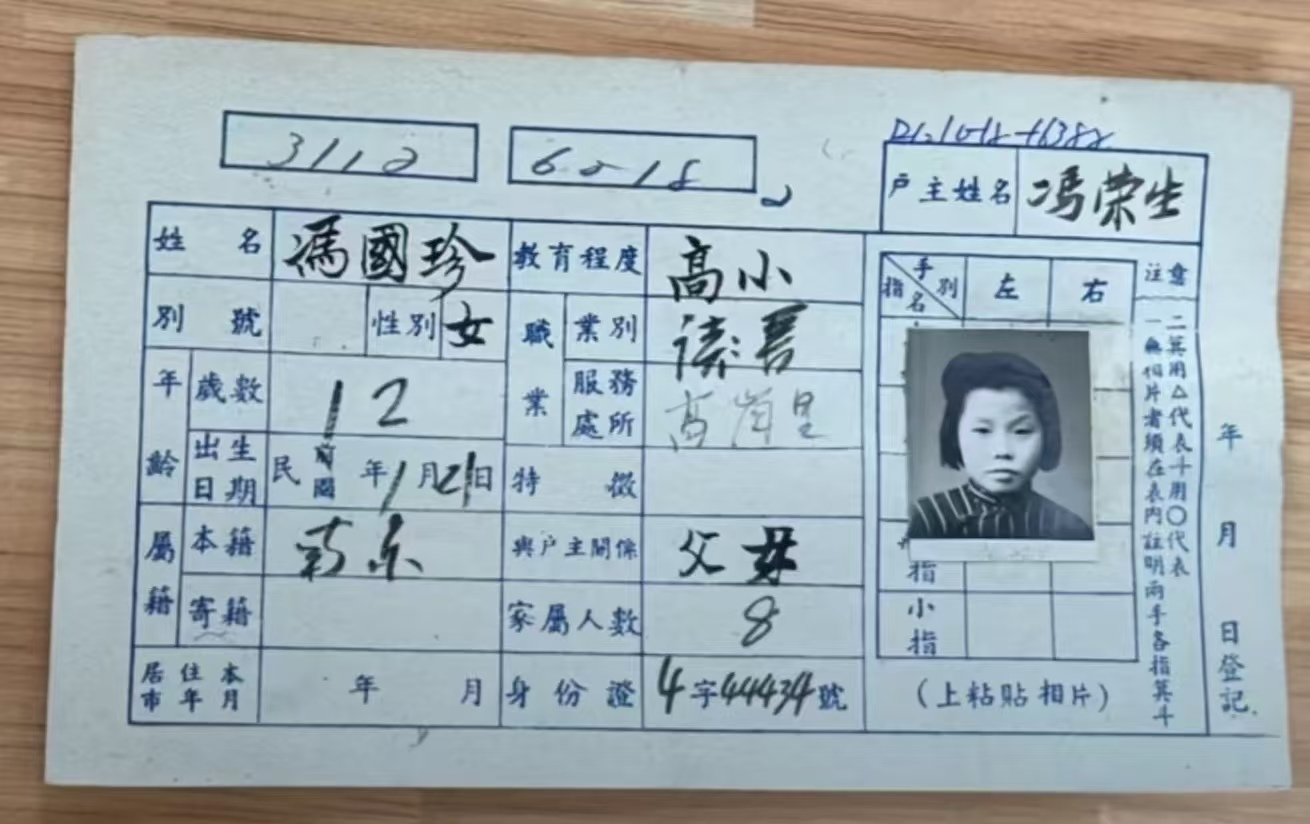 3112
户主姓名 馮荣生
姓名 馮國珍 教育程度 高小
別號 性別 女 職業 業別 讀書
年齡 歲數 12 服務處所 高崗里
出生日期 民前國 年1月21日 特徵
屬籍 本籍 南京 與户主關係 父女
寄籍 家屬人數 8
居住本市年月 年 月 身份證 4字44434號
指名 手別 左 右
指
小指
(上粘貼相片)
注意
一無相片者須在表內註明兩手各指箕斗
二箕用△代表斗用〇代表
年 月 日登記